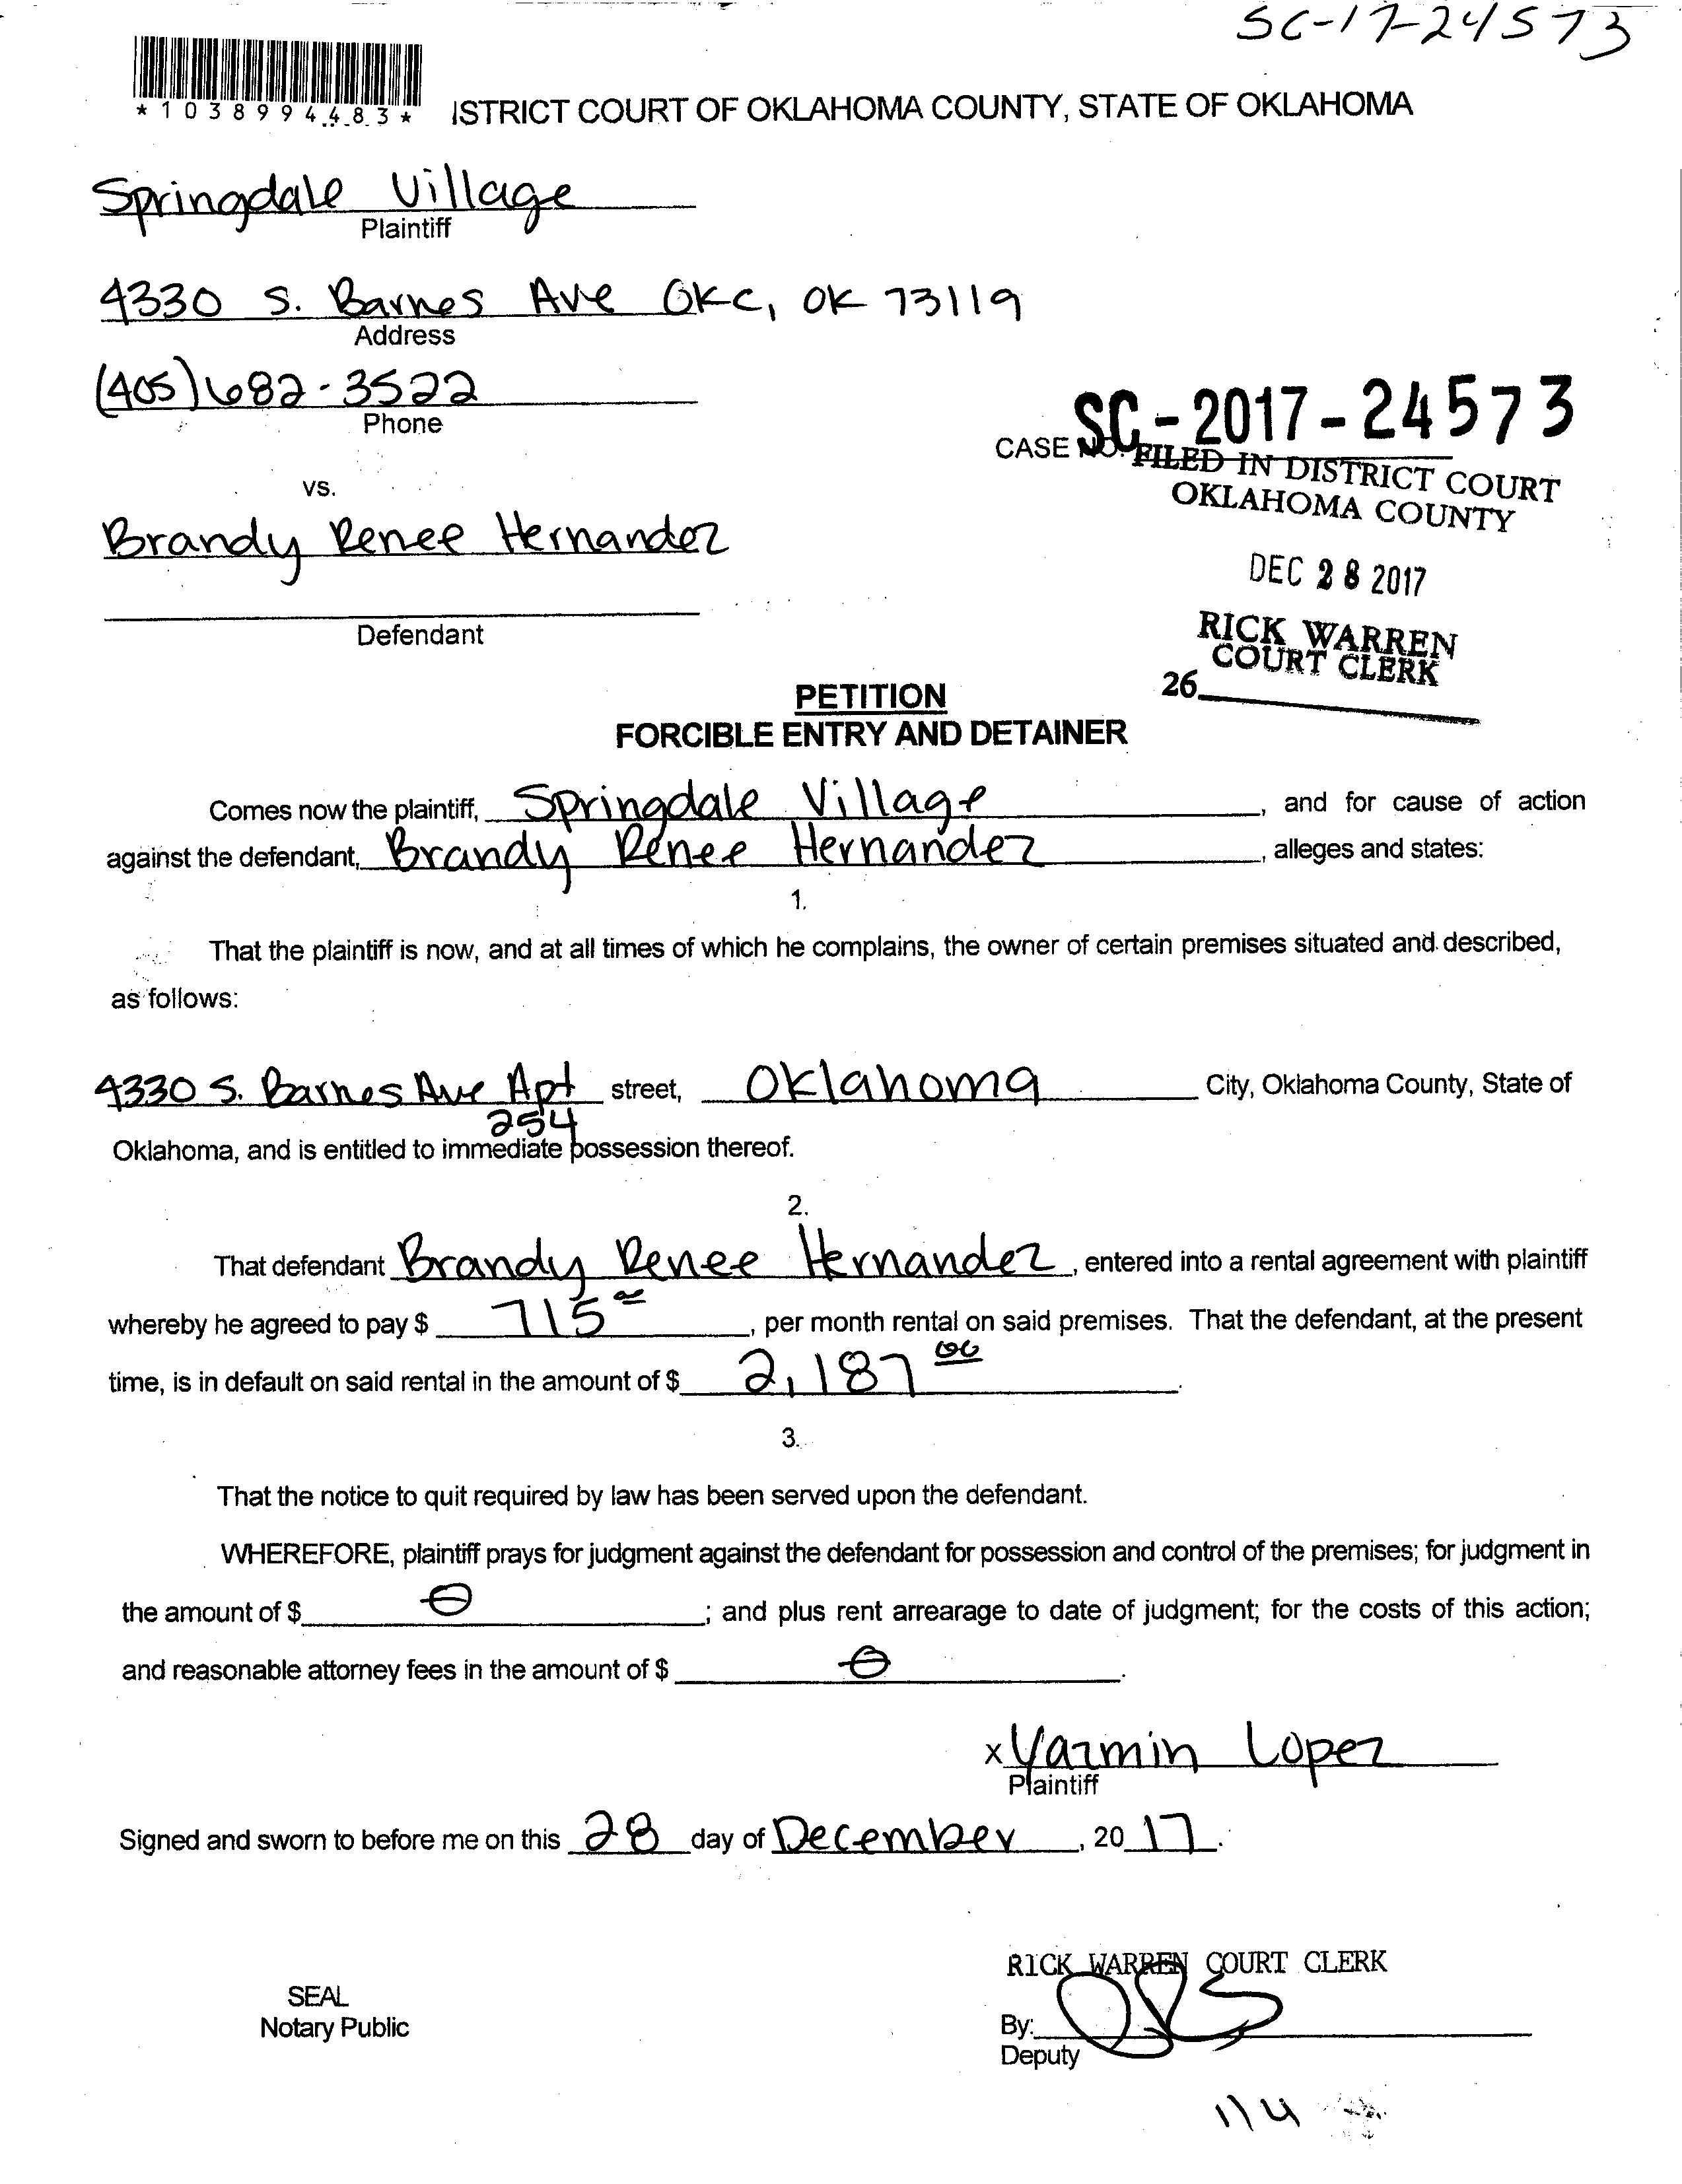 SC-17-24573
*1038994483* ISTRICT COURT OF OKLAHOMA COUNTY, STATE OF OKLAHOMA
Springdale Village
Plaintiff
4330 S. Barnes Ave OKC, OK 73119
Address
(405) 682-3522
Phone
CASE NO. SC-2017-24573
FILED IN DISTRICT COURT
OKLAHOMA COUNTY
vs.
Brandy Renee Hernandez
DEC 28 2017
Defendant
RICK WARREN
COURT CLERK
26
PETITION
FORCIBLE ENTRY AND DETAINER
Comes now the plaintiff, Springdale Village, and for cause of action
against the defendant, Brandy Renee Hernandez, alleges and states:
1.
That the plaintiff is now, and at all times of which he complains, the owner of certain premises situated and described,
as follows:
4330 S. Barnes Ave Apt street, Oklahoma City, Oklahoma County, State of
254
Oklahoma, and is entitled to immediate possession thereof.
2.
That defendant Brandy Renee Hernandez, entered into a rental agreement with plaintiff
whereby he agreed to pay $ 715 00, per month rental on said premises. That the defendant, at the present
time, is in default on said rental in the amount of $ 2,187 00.
3.
That the notice to quit required by law has been served upon the defendant.
WHEREFORE, plaintiff prays for judgment against the defendant for possession and control of the premises; for judgment in
the amount of $ 0; and plus rent arrearage to date of judgment; for the costs of this action;
and reasonable attorney fees in the amount of $ 0.
x Yazmin Lopez
Plaintiff
Signed and sworn to before me on this 28 day of December, 2017.
RICK WARREN COURT CLERK
SEAL
Notary Public
By:
Deputy
1/4